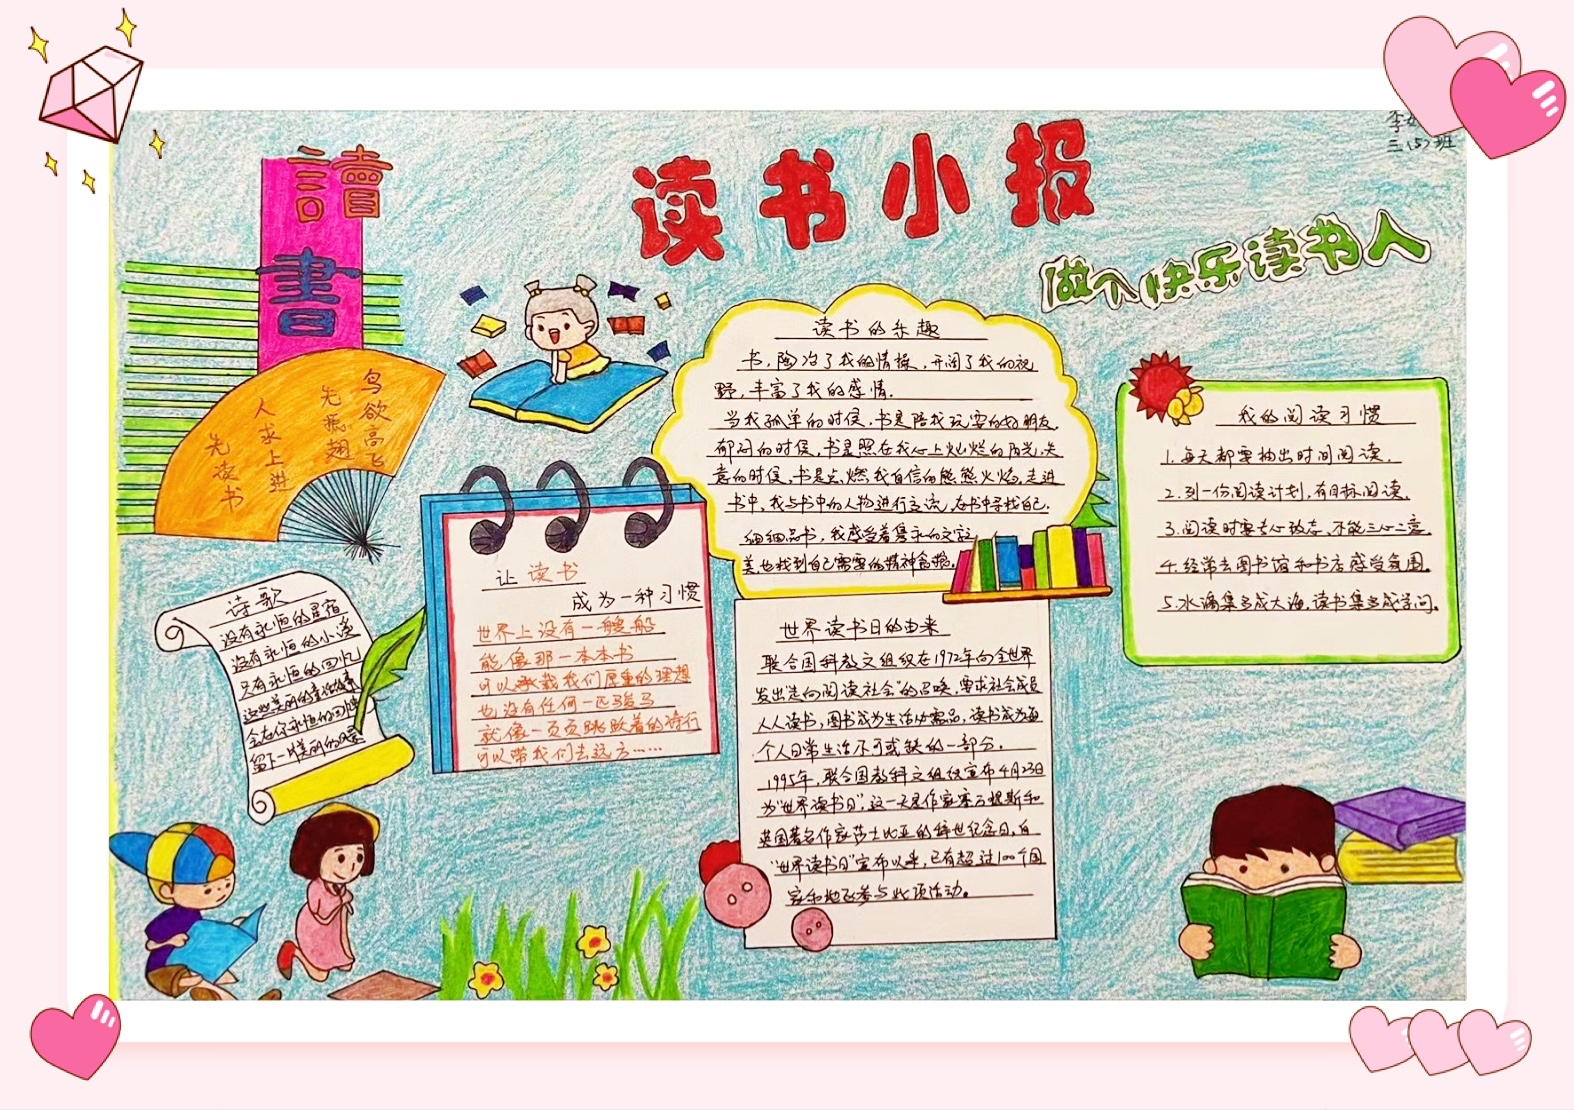 读书小报
做个快乐读书人
三(5)班
讀
書
鸟欲高飞
先振翅
人求上进
先读书
读书的乐趣
书,陶冶了我的情操,开阔了我的视
野,丰富了我的感情.
当我孤单的时候,书是陪我玩耍的好朋友.
郁闷的时候,书是照在我心上灿烂的阳光.失
意的时候,书是点燃我自信的熊熊火焰.走进
书中,我与书中的人物进行交流,在书中寻找自己.
细细品书,我感受着隽永的文字
美,也找到自己需要的精神食粮.
我的阅读习惯
1.每天都要抽出时间阅读.
2.列一份阅读计划,有目标阅读.
3.阅读时要专心致志、不能三心二意.
4.经常去图书馆和书店感受氛围.
5.水滴集多成大海,读书集多成学问.
让读书
成为一种习惯
世界上没有一艘船
能像那一本本书
可以承载我们厚重的理想
也没有任何一匹骏马
就像一页页跳跃着的诗行
可以带我们去远方……
诗歌
没有永恒的星宿
没有永恒的小溪
只有永恒的回忆
这些美丽的
会在你永恒的回忆
留下一样美丽的
世界读书日的由来
联合国科教文组织在1972年向全世界
发出走向阅读社会"的召唤,要求社会成员
人人读书,图书成为生活必需品,读书成为每
个人日常生活不可或缺的一部分.
1995年,联合国教科文组织宣布4月23日
为"世界读书日",这一天是作家塞万提斯和
英国著名作家莎士比亚的辞世纪念日,自
"世界读书日"宣布以来,已有超过100个国
家和地区参与此项活动.